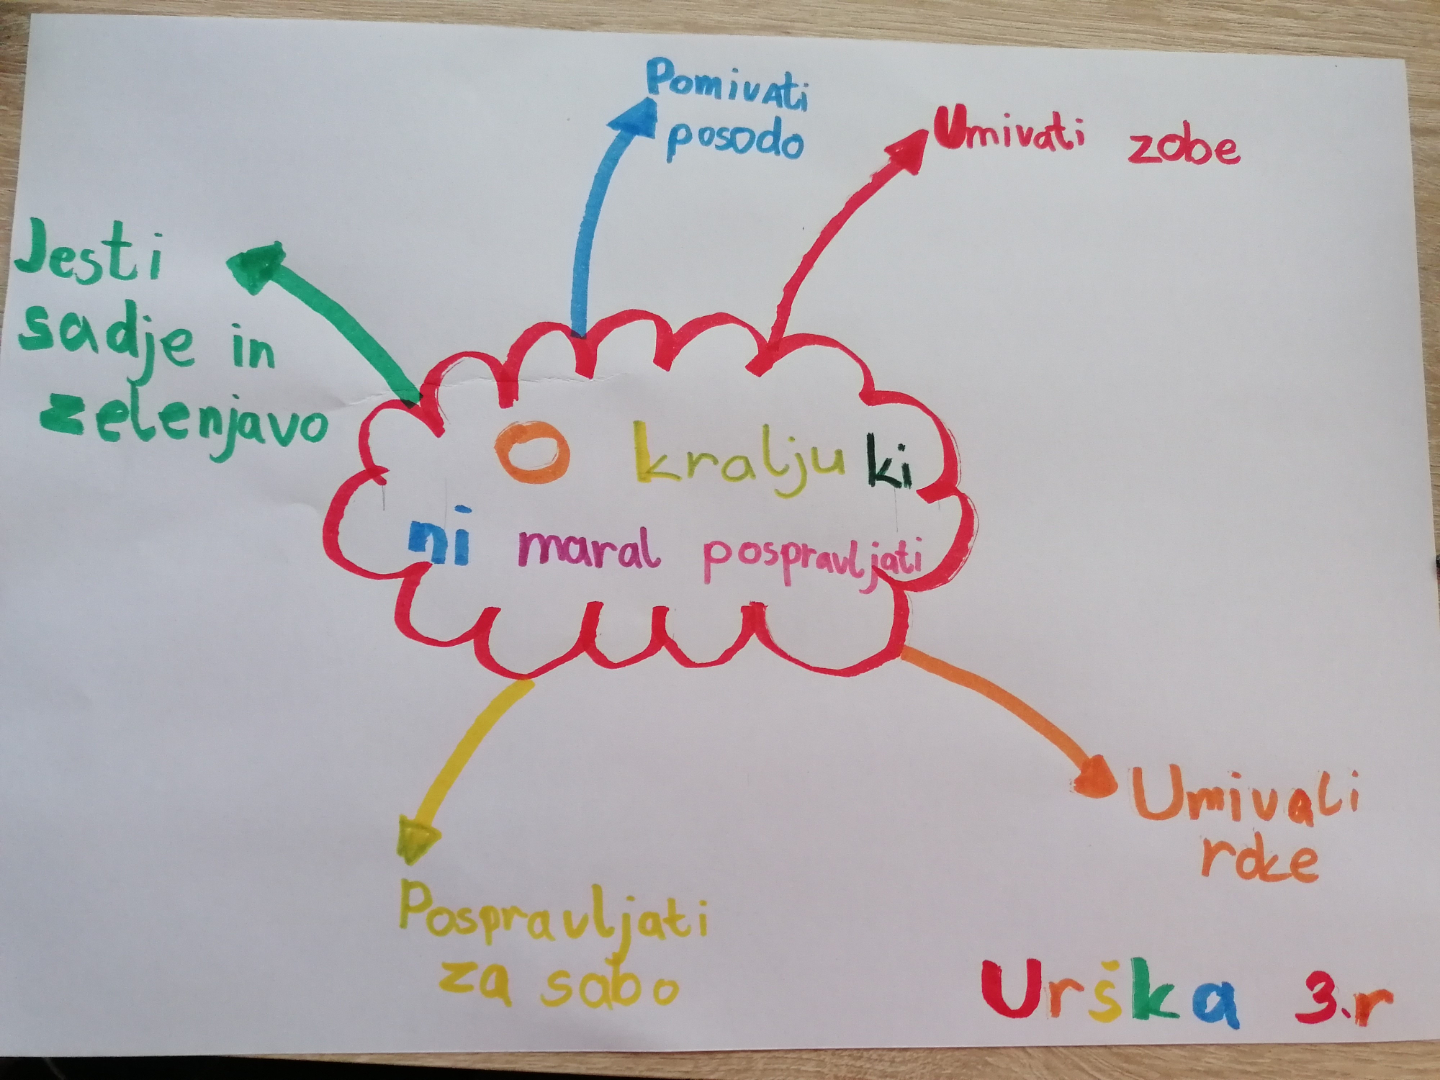 Pomivati
posodo
Umivati zobe
Jesti
sadje in
zelenjavo
O kralju ki
ni maral pospravljati
Umivati
roke
Pospravljati
za sabo
Urška 3.r